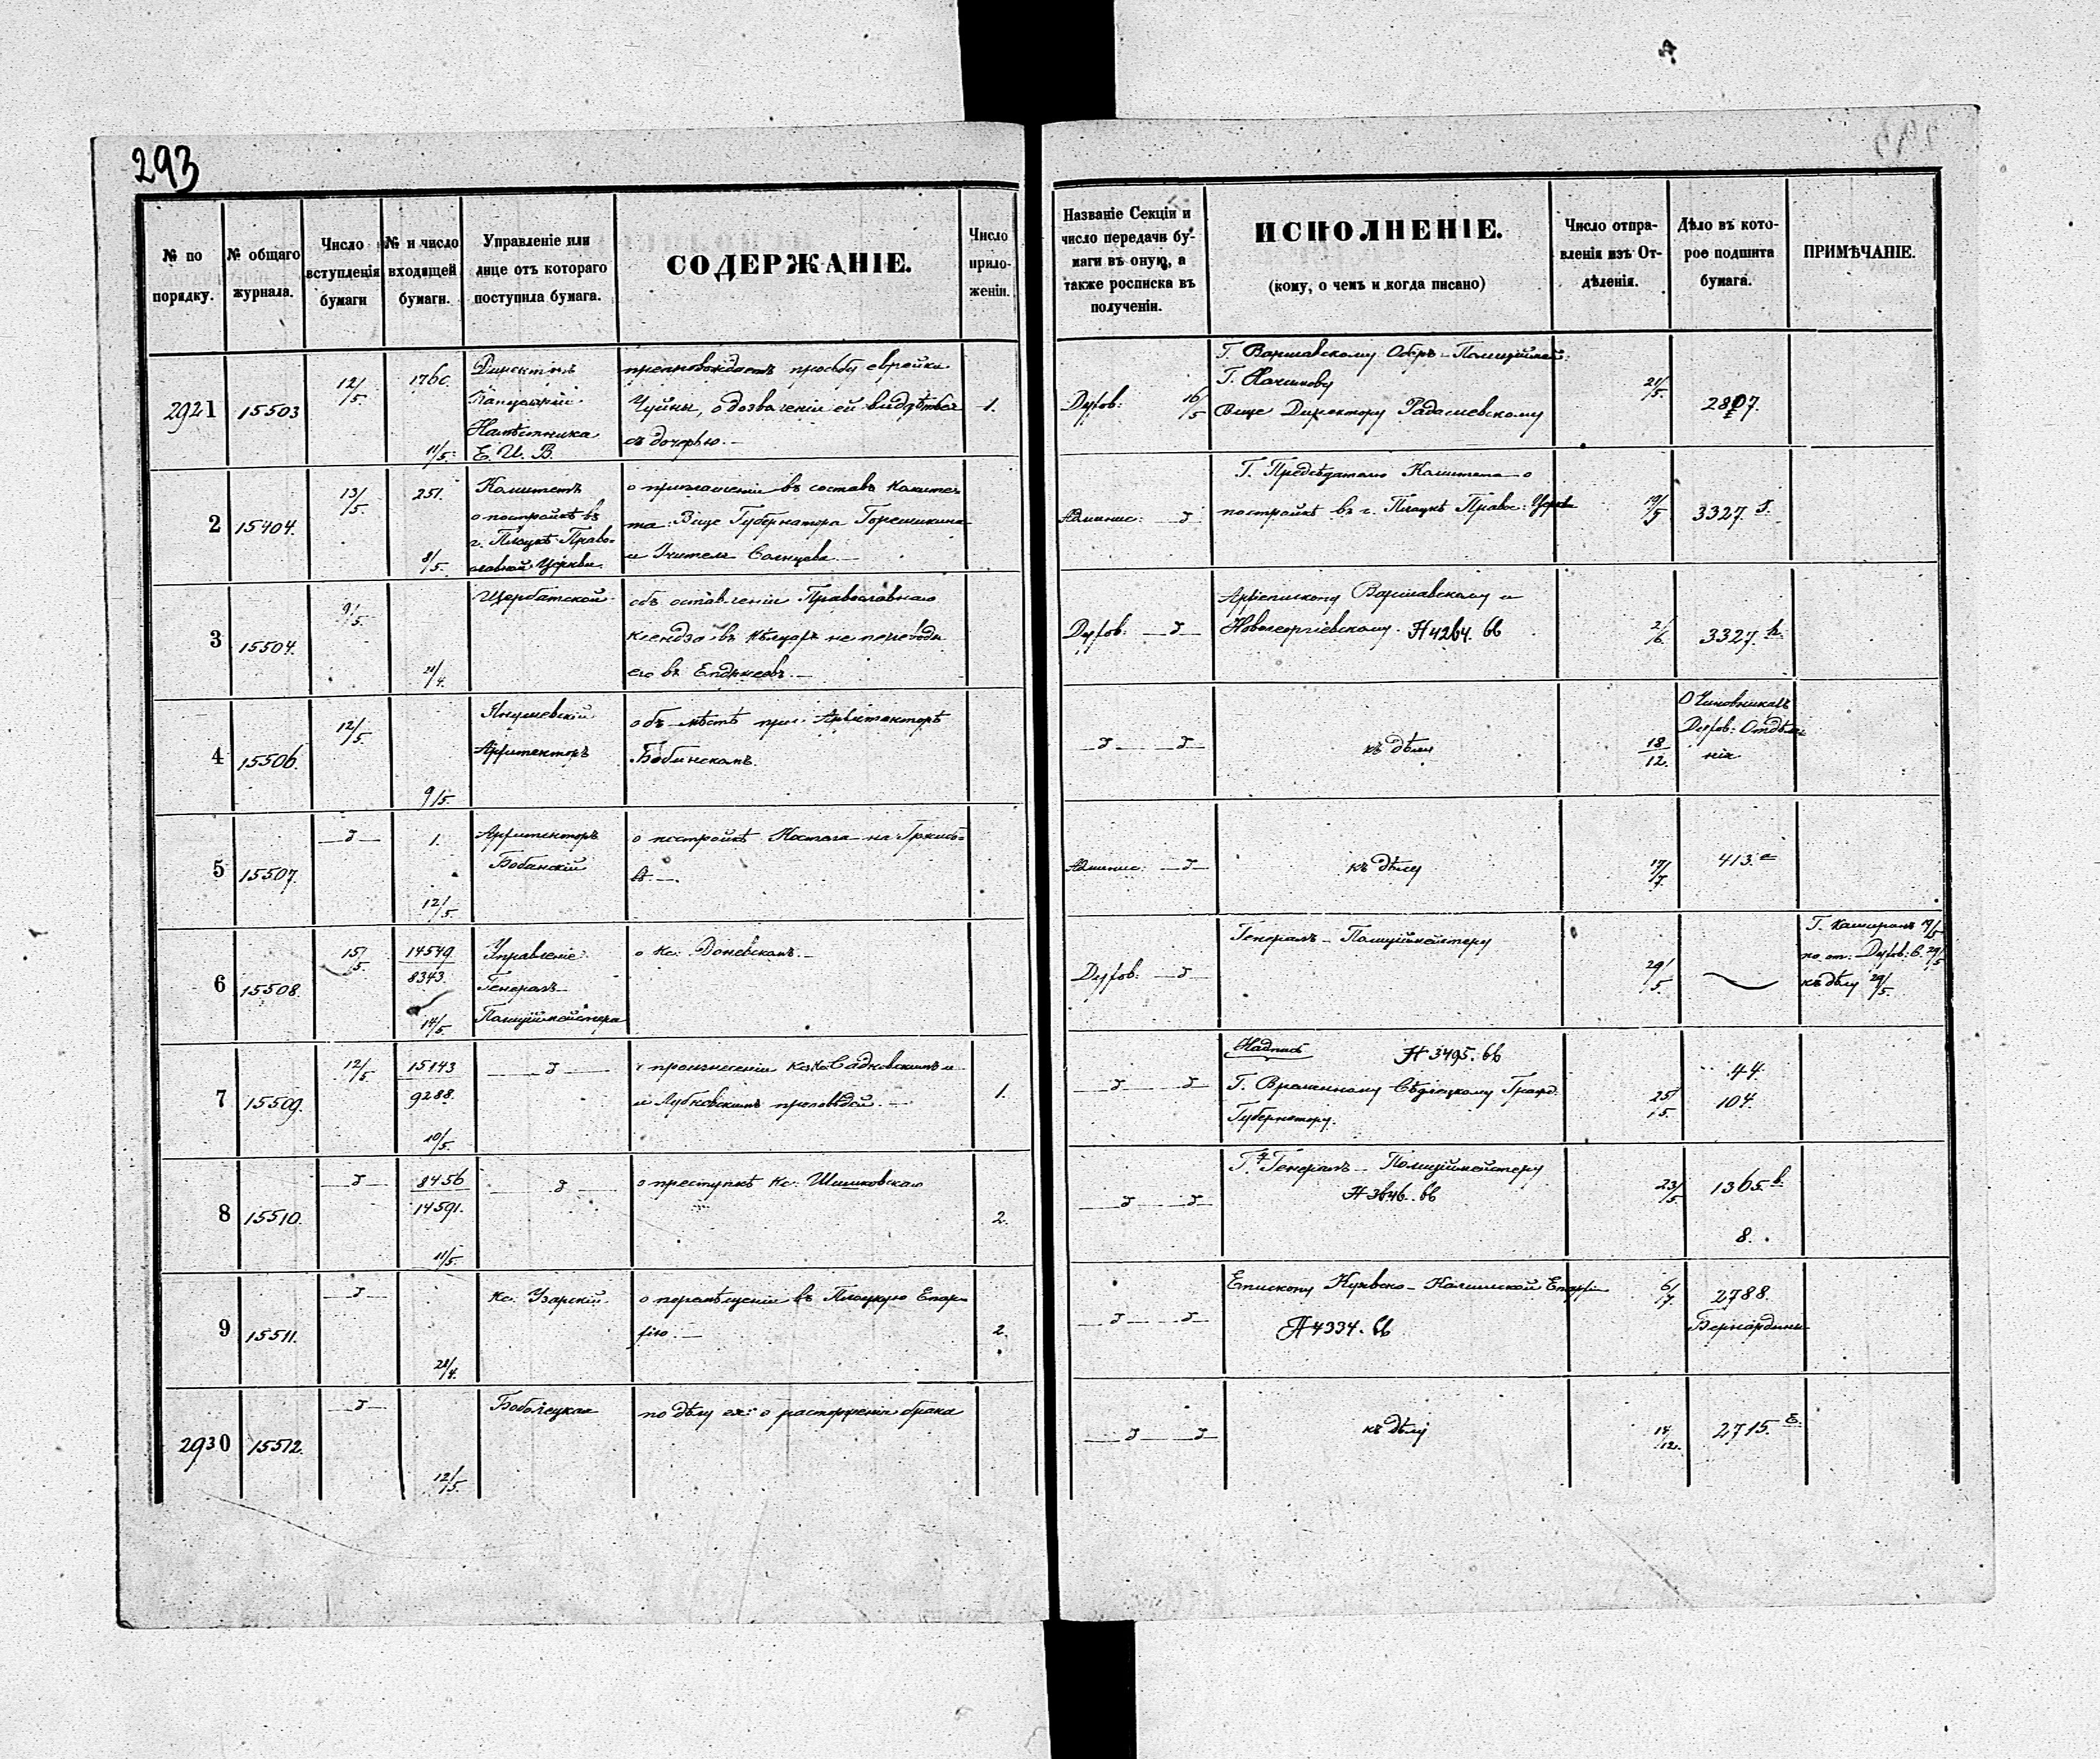 293
№ по порядку.
№ общаго журнала.
Число вступленія бумаги
№ и число входящей бумаги.
Управленіе или лице отъ котораго поступила бумага.
СОДЕРЖАНІЕ.
Число приложеніи.
Названіе Секціи и число передачи бумаги въ оную, а также росписка въ полученіи.
ИСПОЛНЕНІЕ.
(кому, о чемъ и когда писано)
Число отправленія изъ Отдѣленія.
Дѣло въ которое подшита бумага.
ПРИМѢЧАНІЕ.
2921
15503
12/5.
1760.
11/5.
Директоръ
Канцеляріи
Намѣстника
Е. И. В.
препровождаетъ просьбу еврейки
о дозволеніи ей видѣться
съ дочерью.—
1.
Духов: 16/5
Г. Варшавскому Оберъ-Полиціймей:
Г.
Вице Директору
21/5.
2807.
2
15404.
13/5.
251.
8/5.
Комитетъ
о постройкѣ въ
г. Плоцкѣ Право-
славной Церкви.
о приглашеніи въ составъ Комите-
та: Вице Губернатора Горемыкина
и Учителя Солнцева.—
Админис: —д
Г. Предсѣдателю Комитета о
постройкѣ въ г. Плоцкѣ Правос: Церкви
19/5
3327
3
15504.
9/5.
21/4.
Щербатской
объ оставленіи Православнаго
ксендза въ Кѣльцахъ не переводя
его въ Енджеевъ.—
Духов: —д—
Архіепископу Варшавскому и
Новогеоргіевскому. № 4264. вв
2/6.
3327. h.
4
15506.
12/5.
9/5.
Архитекторъ
объ мѣстѣ при Архитекторѣ
Бобинскомъ.
—д— —д—
къ дѣлу
18/12.
О Чиновникахъ
Духов: Отдѣле-
нія
5
15507.
—д—
1.
12/5.
Архитекторъ
Бобинскій
о постройкѣ Костела на Гржибо-
вѣ.—
Админис: —д—
къ дѣлу
17/7.
413. е
6
15508.
15/5.
14549
8343.
14/5.
Управленіе
Генералъ-
Полиціймейстера
о Кс. Доневскомъ.—
Духов: —д
Генералъ-Полиціймейстеру
29/5.
къ дѣлу 29/5.
7
15509.
12/5.
15143
9288.
10/5.
—д—
о произнесеніи Кс.Кс. Садковскимъ и
и Лубковскимъ проповѣдей.—
1.
—д— —д—
Надпись № 3495. вв
Г. Временному Сѣдлецкому Гражд.
Губернатору.
25/5
44.
104.
8
15510.
—д—
8456
14591.
11/5.
—д—
о преступкѣ Кс. Шишковскаго
2.
—д— —д
Г. Генералъ-Полиціймейстеру
№ 3646. вв
23/5
1365. в.
8.
9
15511.
—д—
28/4.
Кс. Узарскій
о перемѣщеніи въ Плоцкую Епар-
хію.—
2.
—д— —д—
Епископу Куявско-Калишской Епархіи
№ 4334. вв
6/7.
2788.
Бернардины
2930
15512.
—д—
12/5.
Боболецкая
по дѣлу ея о расторженіи брака
—д— —д—
къ дѣлу
14/12.
2715.